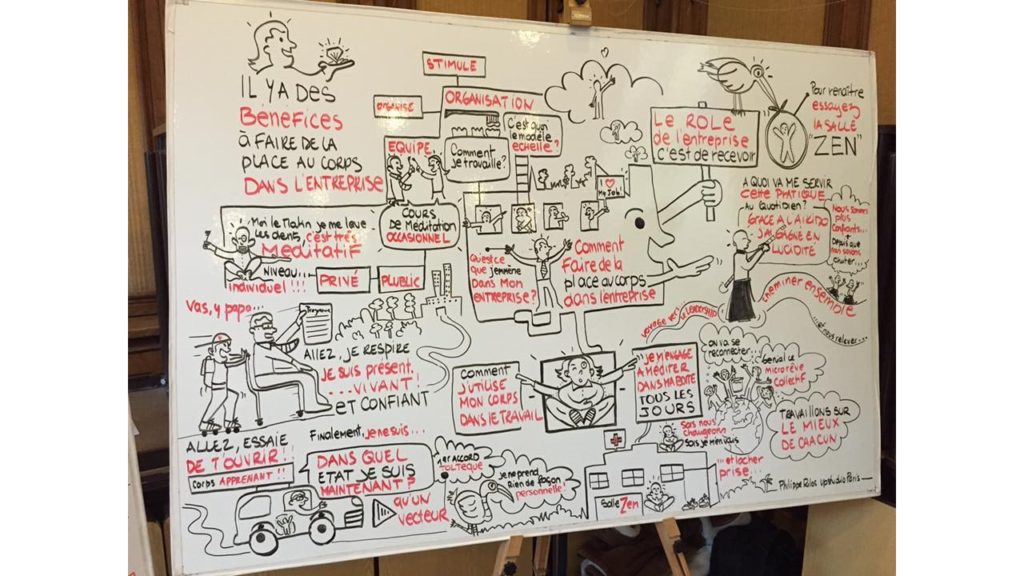 IL Y A DES
BÉNÉFICES
À FAIRE DE LA
PLACE AU CORPS
DANS L'ENTREPRISE
STIMULE
ORGANISE
ORGANISATION
EQUIPE
Comment
je travaille?
C'est quoi
le modèle
échelle?
COURS
DE MÉDITATION
OCCASIONNEL
Moi le matin je me lave
les dents, c'est très
MÉDITATIF
NIVEAU...
individuel!!!
PRIVÉ
PUBLIC
I ♥
My Job!
Qu'est ce
que j'emmène
DANS MON
ENTREPRISE?
Comment
Faire de la
place au corps
dans l'entreprise
Le ROLE
de l'entreprise
c'est de recevoir
Pour renaître
essayez
LA SALLE
"ZEN"
A QUOI VA ME SERVIR
Cette PRATIQUE
AU QUOTIDIEN?
GRACE A L'AIKIDO
J'AI GAGNÉ EN
LUCIDITÉ
Nous sommes
plus
confiants...
Depuis que
nous savons
chuter...
cheminer ensemble
...et nous relever...
voyage vers le LEADERSHIP
Vas, y papa...
ALLEZ, JE RESPIRE
JE SUIS PRÉSENT.
...VIVANT!
ET CONFIANT
Comment
J'UTILISE
MON CORPS
DANS LE TRAVAIL
"JE M'ENGAGE
A MÉDITER
DANS MA BOITE
TOUS LES
JOURS
ON VA SE
reconnecter...
Génial le
microrêve
collectif
TRAVAILLONS SUR
LE MIEUX
DE CHACUN
ALLEZ, ESSAIE
DE T'OUVRIR!!
Corps APPRENANT!!
Finalement, je ne suis...
DANS QUEL
ETAT JE SUIS
MAINTENANT?
qu'un
vecteur
1er ACCORD
TOLTEQUE
je ne prend
rien de façon
personnelle!
Salle Zen
...et lâcher
prise...
Philippe Ribs upstudio Paris